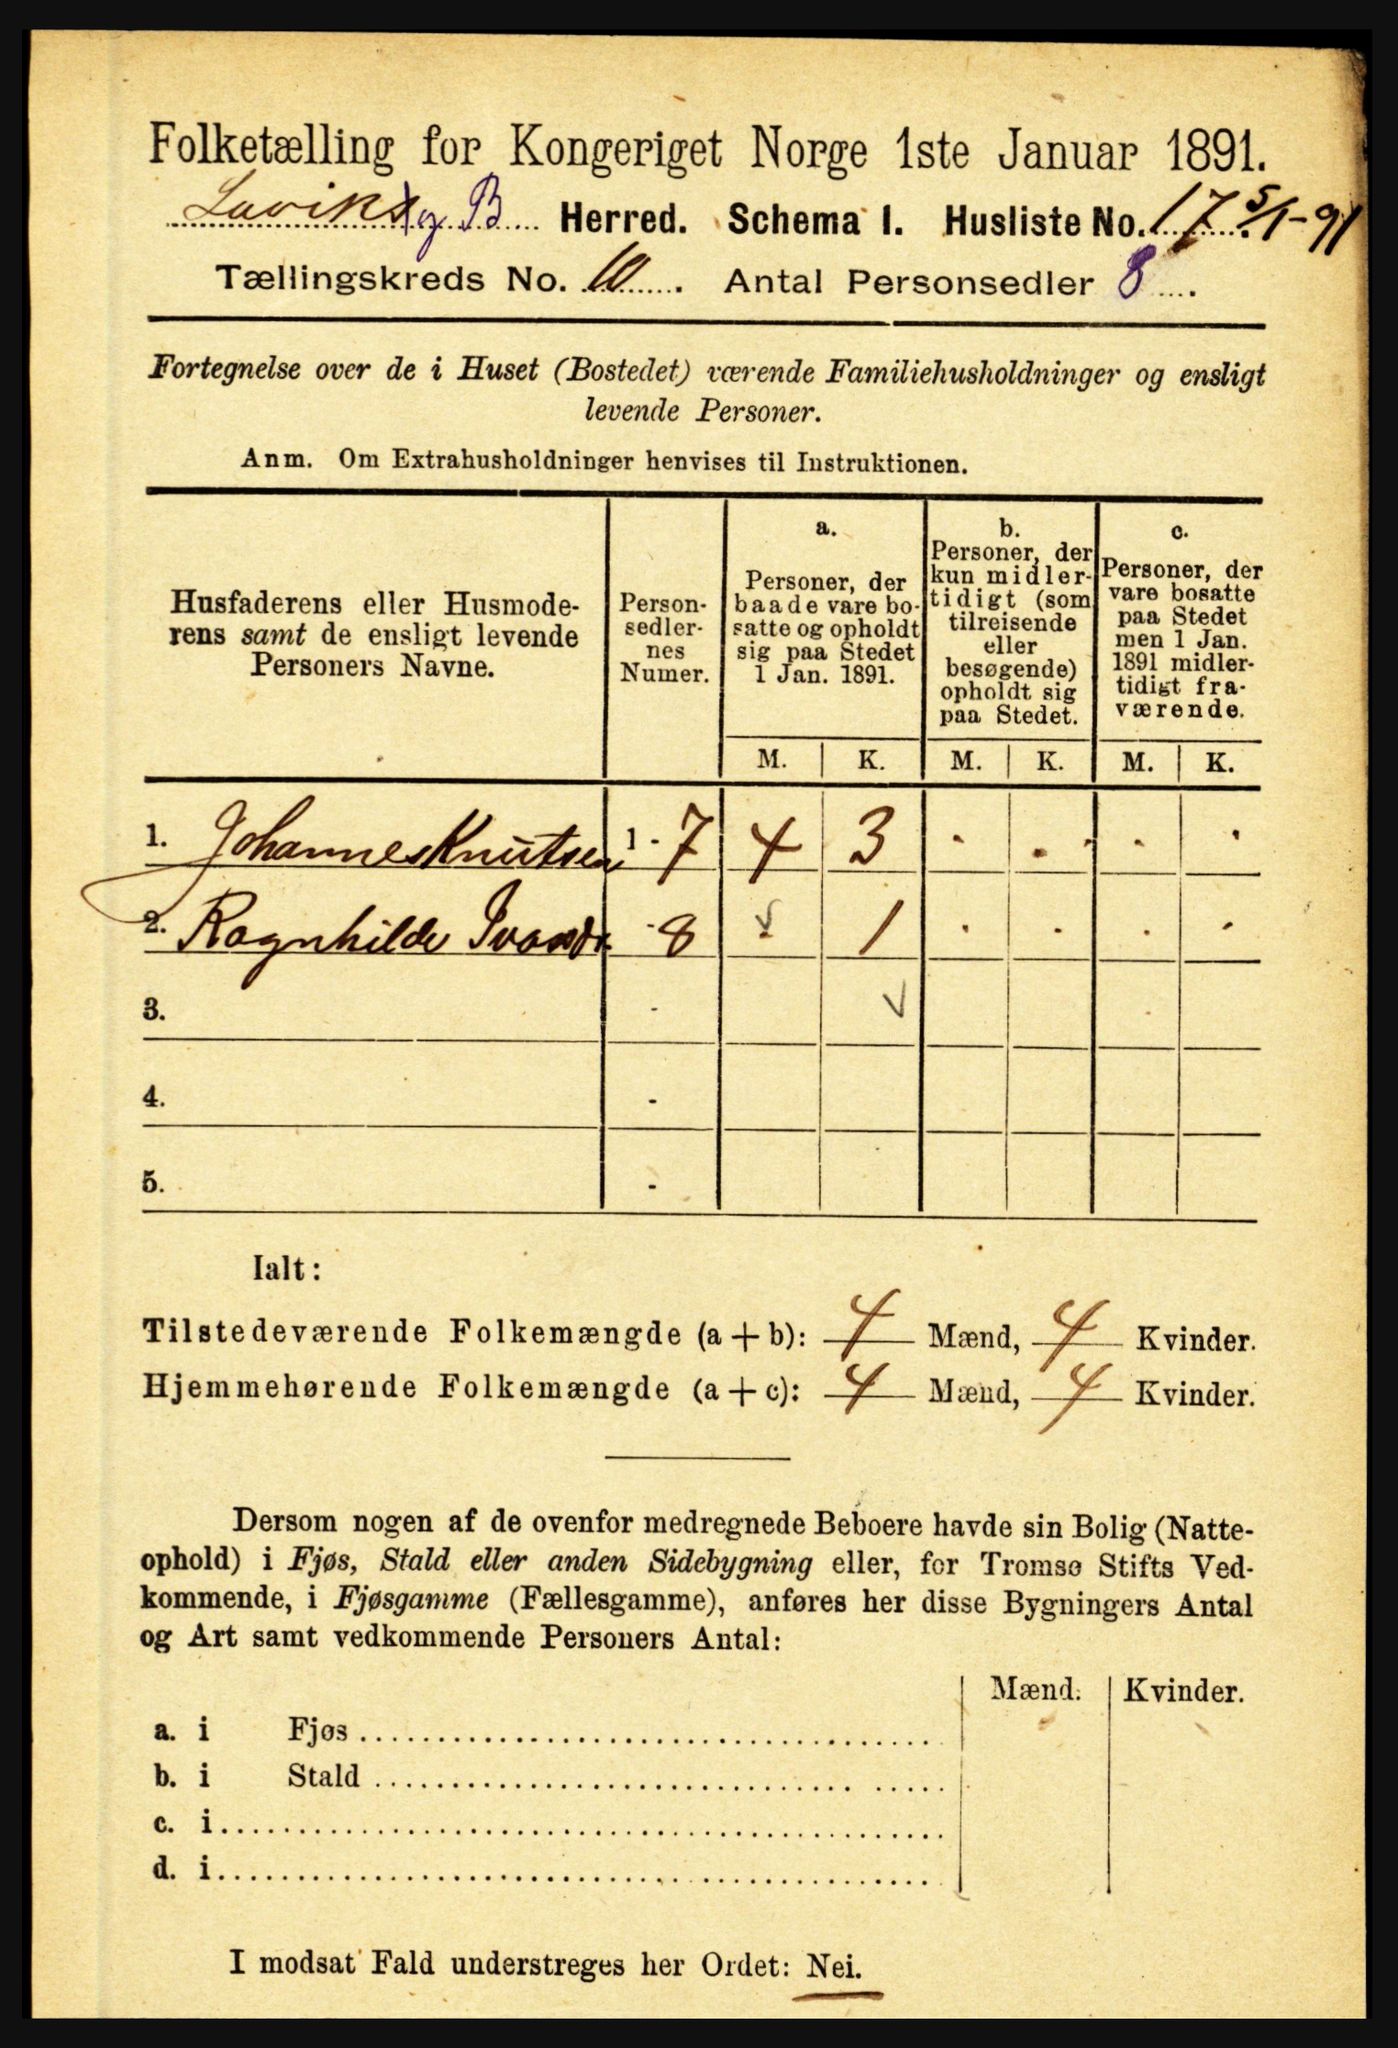 Folketælling for Kongeriget Norge 1ste Januar 1891.
Laviks og B Herred. Schema I. Husliste No. 17 5/1-91
Tællingskreds No. 10. Antal Personsedler 8.
Fortegnelse over de i Huset (Bostedet) værende Familiehusholdninger og ensligt
levende Personer.
Anm. Om Extrahusholdninger henvises til Instruktionen.
Husfaderens eller Husmode-
rens samt de ensligt levende
Personers Navne.
Person-
sedler-
nes
Numer.
a.
Personer, der
baade vare bo-
satte og opholdt
sig paa Stedet
1 Jan. 1891.
b.
Personer, der
kun midler-
tidigt (som
tilreisende
eller
besøgende)
opholdt sig
paa Stedet.
c.
Personer, der
vare bosatte
paa Stedet
men 1 Jan.
1891 midler-
tidigt fra-
værende.
M. K. M. K. M. K.
1. Johannes Knutsen 1 - 7 4 3 . . . .
2. Ragnhilde - 8 1 . . . .
3. -
4. -
5. -
Ialt:
Tilstedeværende Folkemængde (a + b): 4 Mænd, 4 Kvinder.
Hjemmehørende Folkemængde (a + c): 4 Mænd, 4 Kvinder.
Dersom nogen af de ovenfor medregnede Beboere havde sin Bolig (Natte-
ophold) i Fjøs, Stald eller anden Sidebygning eller, for Tromsø Stifts Ved-
kommende, i Fjøsgamme (Fællesgamme), anføres her disse Bygningers Antal
og Art samt vedkommende Personers Antal:
Mænd. Kvinder.
a. i Fjøs
b. i Stald
c. i
d. i
I modsat Fald understreges her Ordet: Nei.